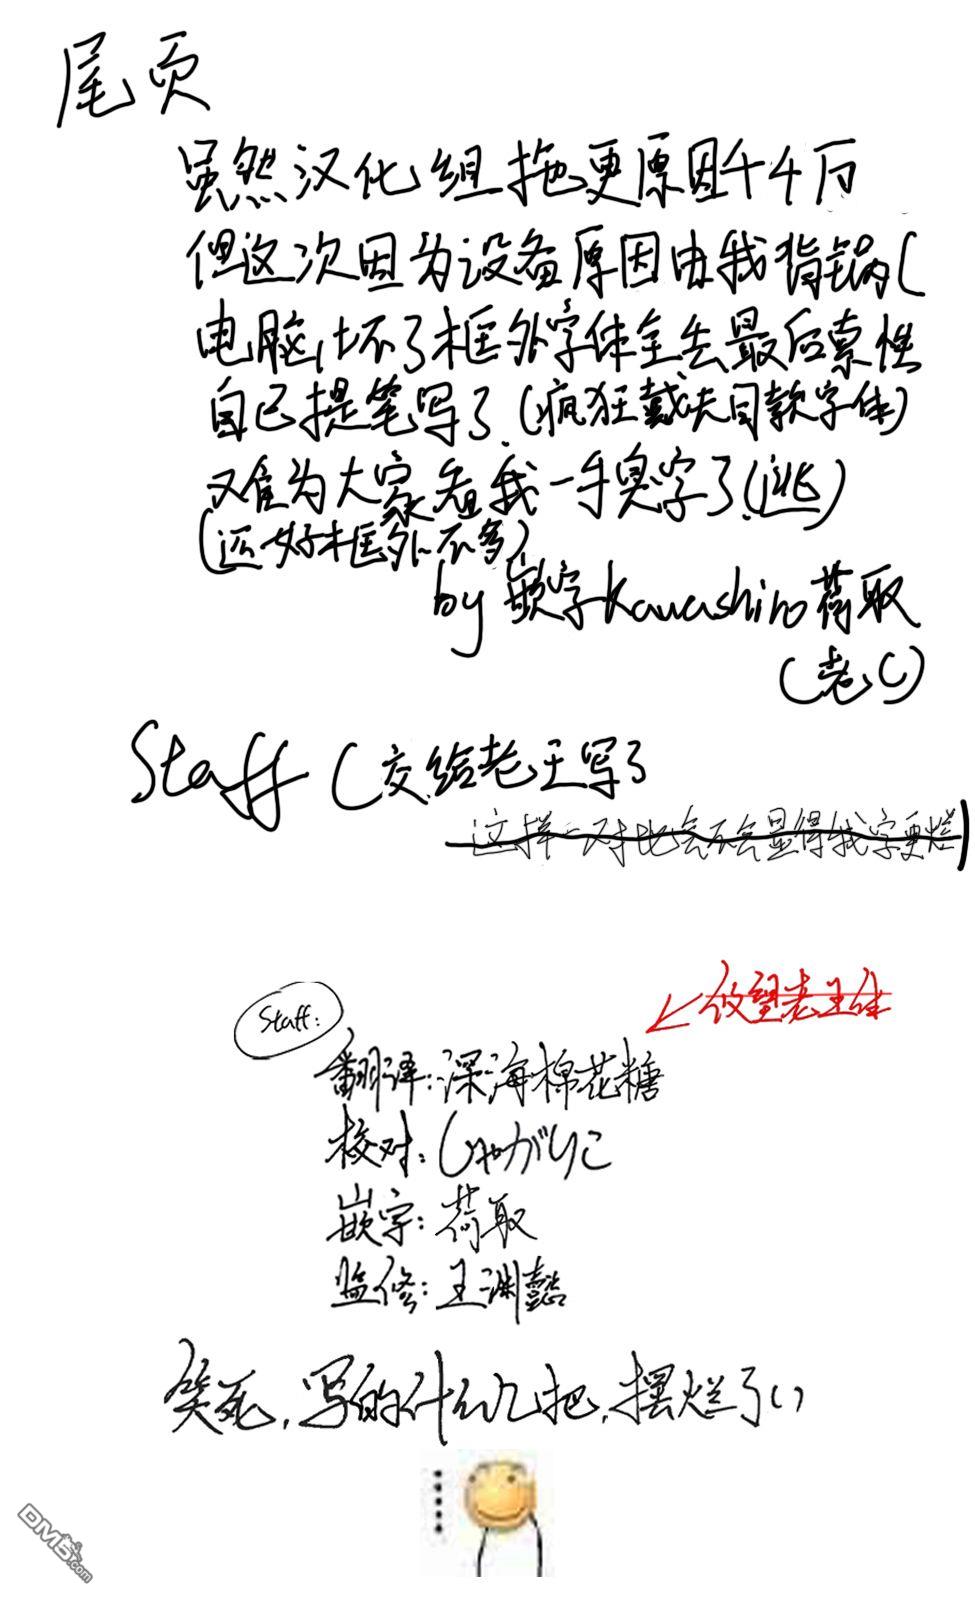 尾页
虽然汉化组拖更原因千千万
但这次因为设备原因由我背锅(
电脑坏了框外字体全丢最后索性
自己提笔写了(疯狂戴夫同款字体)
难为大家看我一手臭字了(逃)
(还好框外不多)
by 嵌字Kawashiro荷取
(老C)
Staff (交给老王写了
这样一对比会不会显得我字更烂
老王体
Staff:
翻译:深海棉花糖
校对:じゃがりこ
嵌字:荷取
监修:王渊懿
笑死,写的什么几把,摆烂了()
DM5